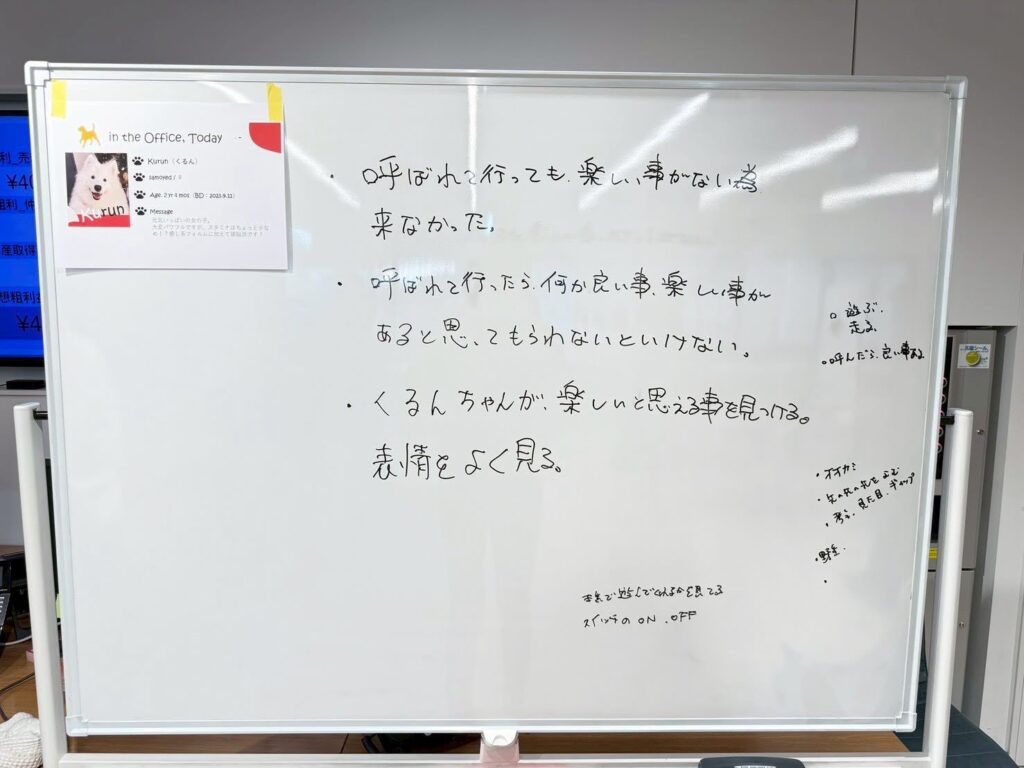 in the Office, Today
Kurun（くるん）
Samoyed / ♀
Message
元気いっぱいの女の子。
Kurun
・呼ばれて行っても、楽しい事がない為
来なかった。
・呼ばれて行ったら、何か良い事、楽しい事が
あると思ってもらわないといけない。
・くるんちゃんが、楽しいと思える事を見つける。
表情をよく見る。
○遊ぶ、
走る。
○呼んだら、良い事ある。
・オオカミ
・先の先の先をよむ
・考え、見た目、ギャップ
・野生、
本気で遊んでくれるかを見てる
スイッチの ON、OFF
利_売
¥40
粗利_仲
産取得
想粗利
¥4